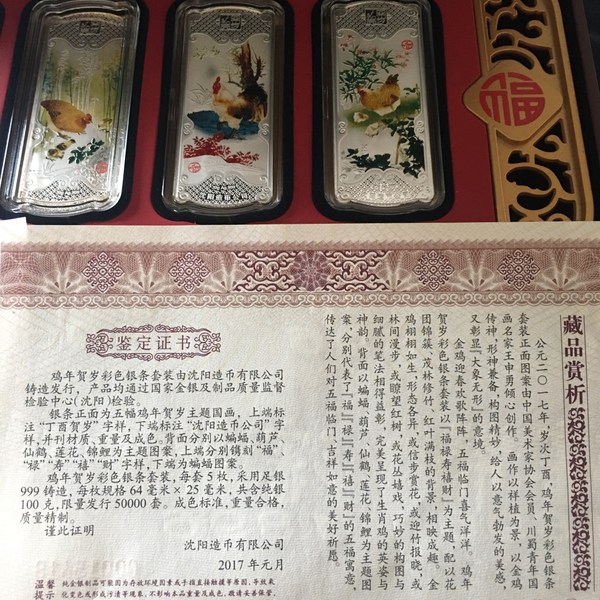 福
鉴定证书
鸡年贺岁彩色银条套装由沈阳造币有限公司
铸造发行，产品均通过国家金银及制品质量监督
检验中心(沈阳)检验。
银条正面为五幅鸡年贺岁主题国画，上端标
注“丁酉贺岁”字样，下端标注“沈阳造币公司”字
样，并刊材质、重量及成色。背面分别以蝙蝠、葫芦、
仙鹤、莲花、锦鲤为主题图案，上端分别镌刻“福”、
“禄”“寿”“禧”“财”字样，下端为蝙蝠图案。
鸡年贺岁彩色银条套装，每套5枚，采用足银
999铸造，每枚规格64毫米×25毫米，共含纯银
100克，限量发行50000套。成色标准，重量合格，
质量精制。
谨此证明
沈阳造币有限公司
2017年元月
温馨
提示
纯金银制品可能因为存放环境因素或手指直接触摸等原因，导致硫
化变色或形成污渍等现象，不影响本品重量及成色，敬请妥善保管。
藏品赏析
公元二〇一七年，岁次丁酉，鸡年贺岁彩色银条
套装正面图案由中国美术家协会会员、川蜀青年国
画名家王申勇倾心创作。画作以祥植为景，以金鸡
传神，形神兼备，构图精妙，给人以意气勃发的美感，
又彰显“大象无形”的意境。
金鸡迎春欢歌阵阵，五福临门喜气洋洋。鸡年
贺岁彩色银条套装以“福禄寿禧财”为主题，配以花
团锦簇、茂林修竹、红叶满枝的背景，相映成趣。金
鸡栩栩如生，形态各异，或信步赏花，或迎竹报晓，或
林间漫步，或瞭望红树，或花丛嬉戏，巧妙的构图与
细腻的笔法相得益彰，完美呈现了生肖鸡的英姿与
神韵。背面以蝙蝠、葫芦、仙鹤、莲花、锦鲤为主题图
案，分别代表了「福」「禄」「寿」「禧」「财」的五福寓意，
传达了人们对五福临门、吉祥如意的美好祈愿。